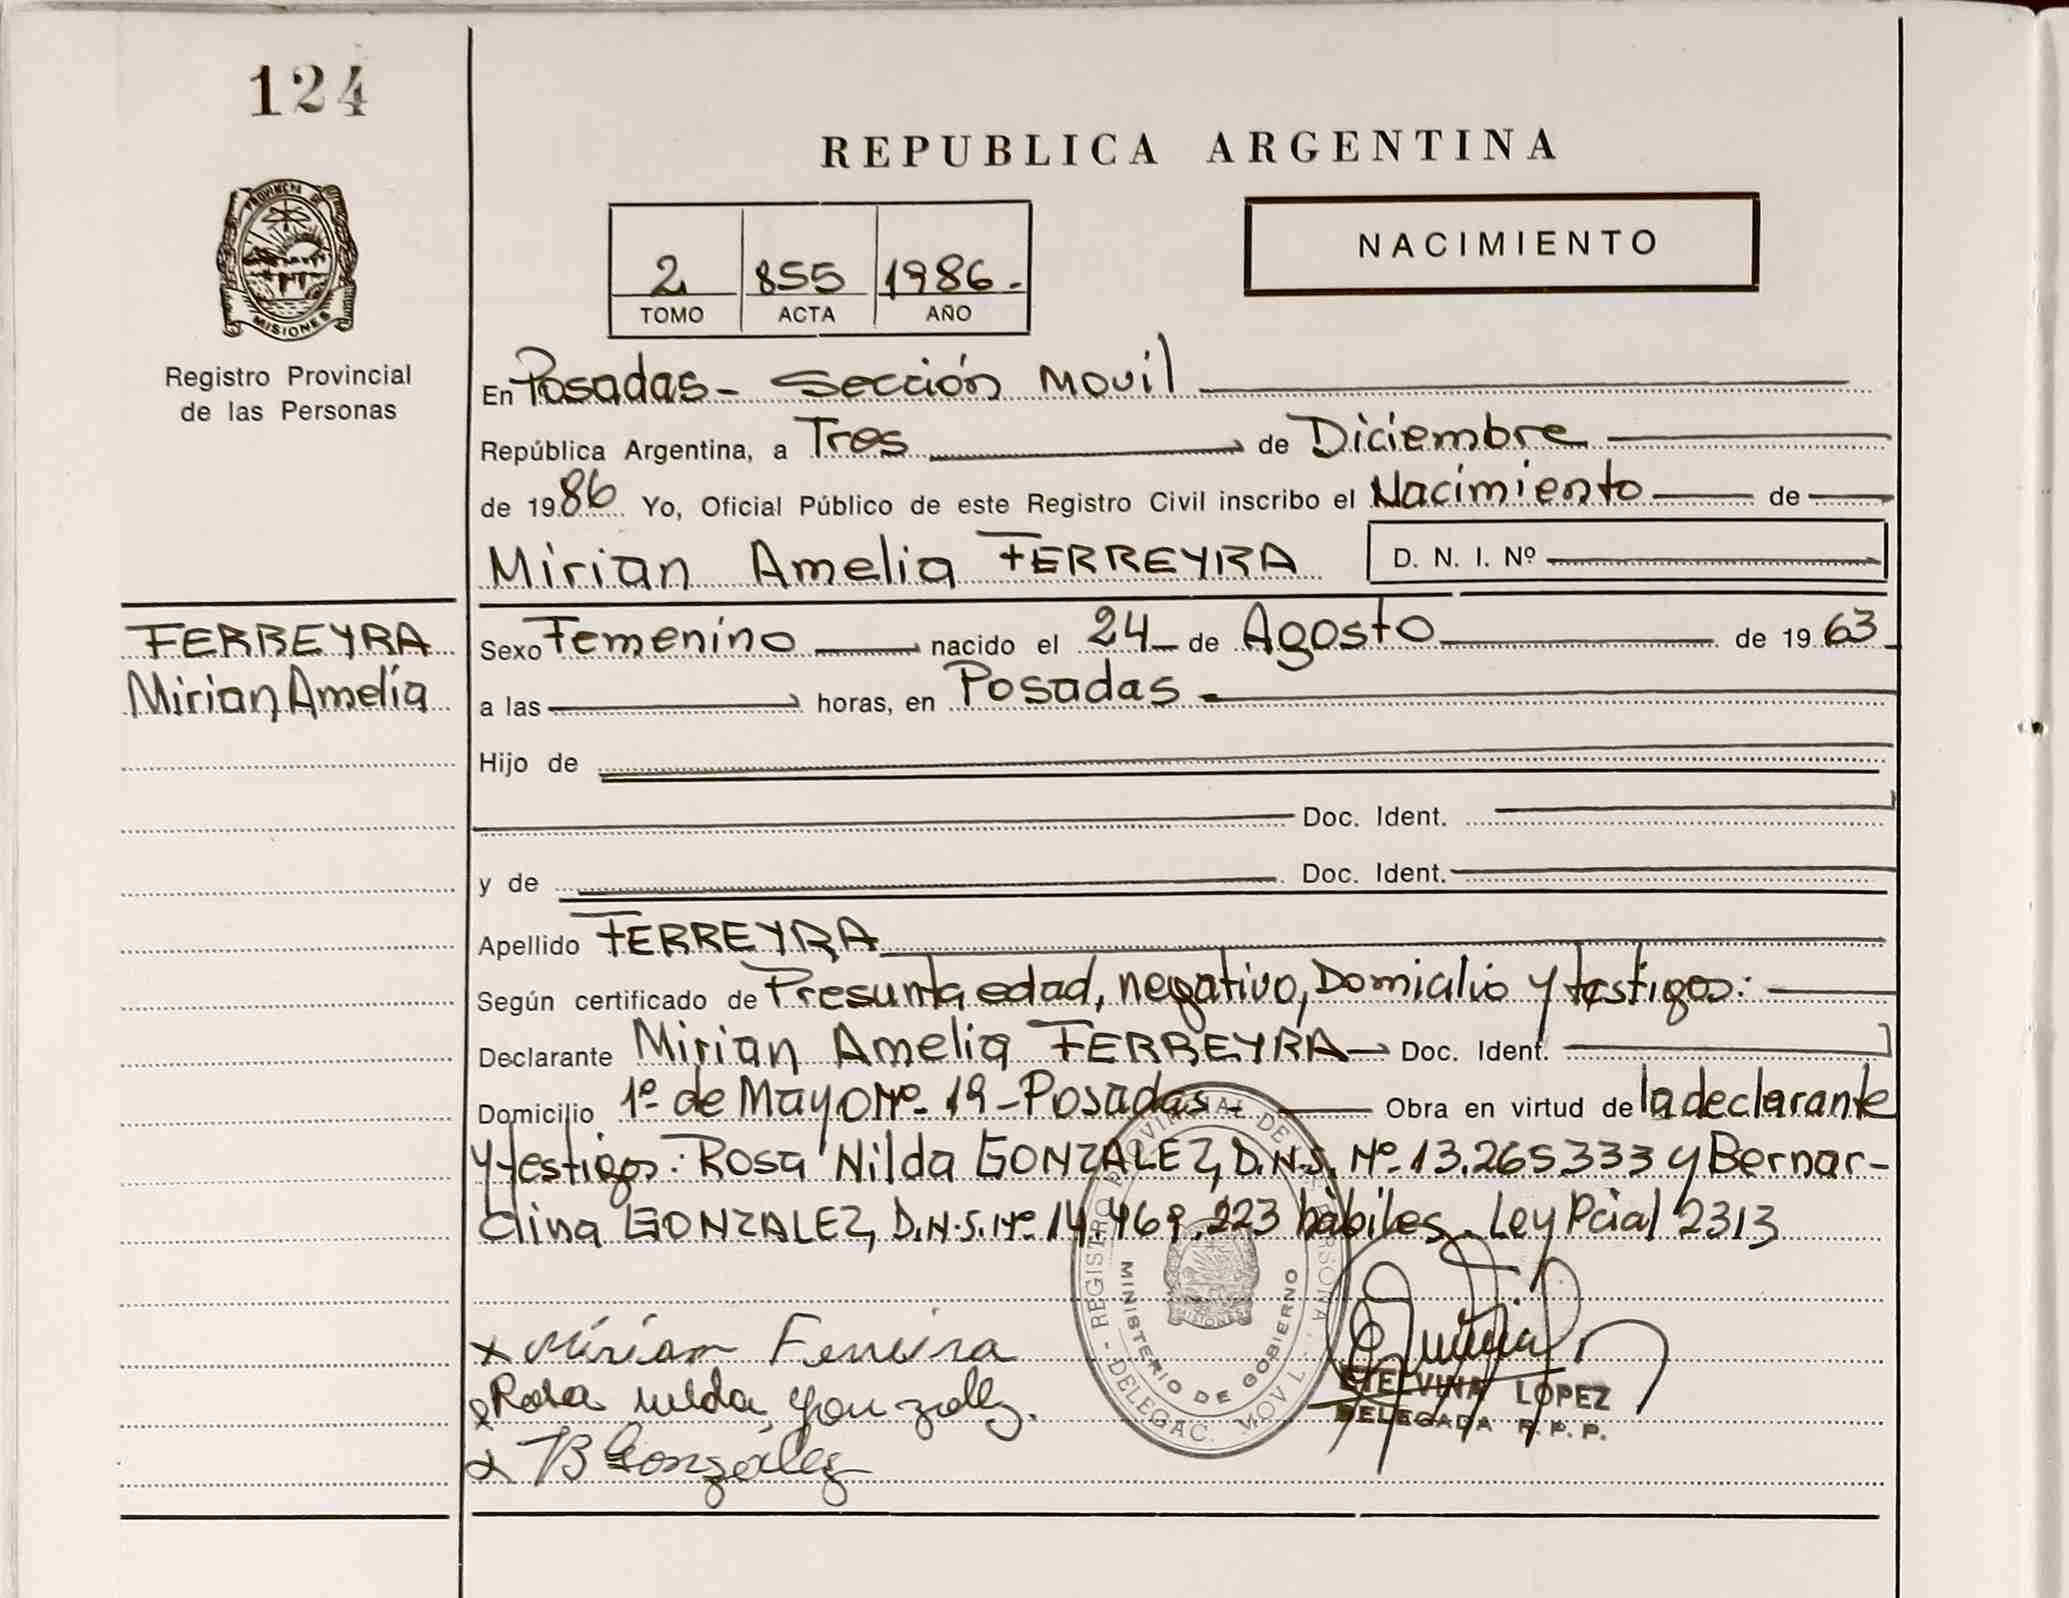 124
REPUBLICA ARGENTINA
PROVINCIA DE
MISIONES
Registro Provincial
de las Personas
NACIMIENTO
2 855 1986.-
TOMO ACTA AÑO
En Posadas - Sección Movil
República Argentina, a Tres de Diciembre
de 1986 Yo, Oficial Público de este Registro Civil inscribo el Nacimiento de
Mirian Amelia FERREYRA D. N. I. Nº
FERREYRA
Mirian Amelia
Sexo Femenino nacido el 24 de Agosto de 1963
a las horas, en Posadas -
Hijo de
Doc. Ident.
y de Doc. Ident.
Apellido FERREYRA
Según certificado de Presunta edad, negativo, Domicilio y testigos:
Declarante Mirian Amelia FERREYRA Doc. Ident.
Domicilio 1º de Mayo Nº 19 - Posadas - Obra en virtud de la declarante
y testigos: Rosa Nilda GONZALEZ, D.N.I. Nº 13.265.333 y Bernar-
dina GONZALEZ, D.N.I. Nº 14.469.223 hábiles. Ley Pcial 2313
x Miriam Ferreira
x Rosa nilda gonzalez.
x B González
REGISTRO PROVINCIAL DE LAS PERSONAS
MINISTERIO DE GOBIERNO
DELEGAC. MOVIL
ETELVINA LOPEZ
DELEGADA R. P. P.